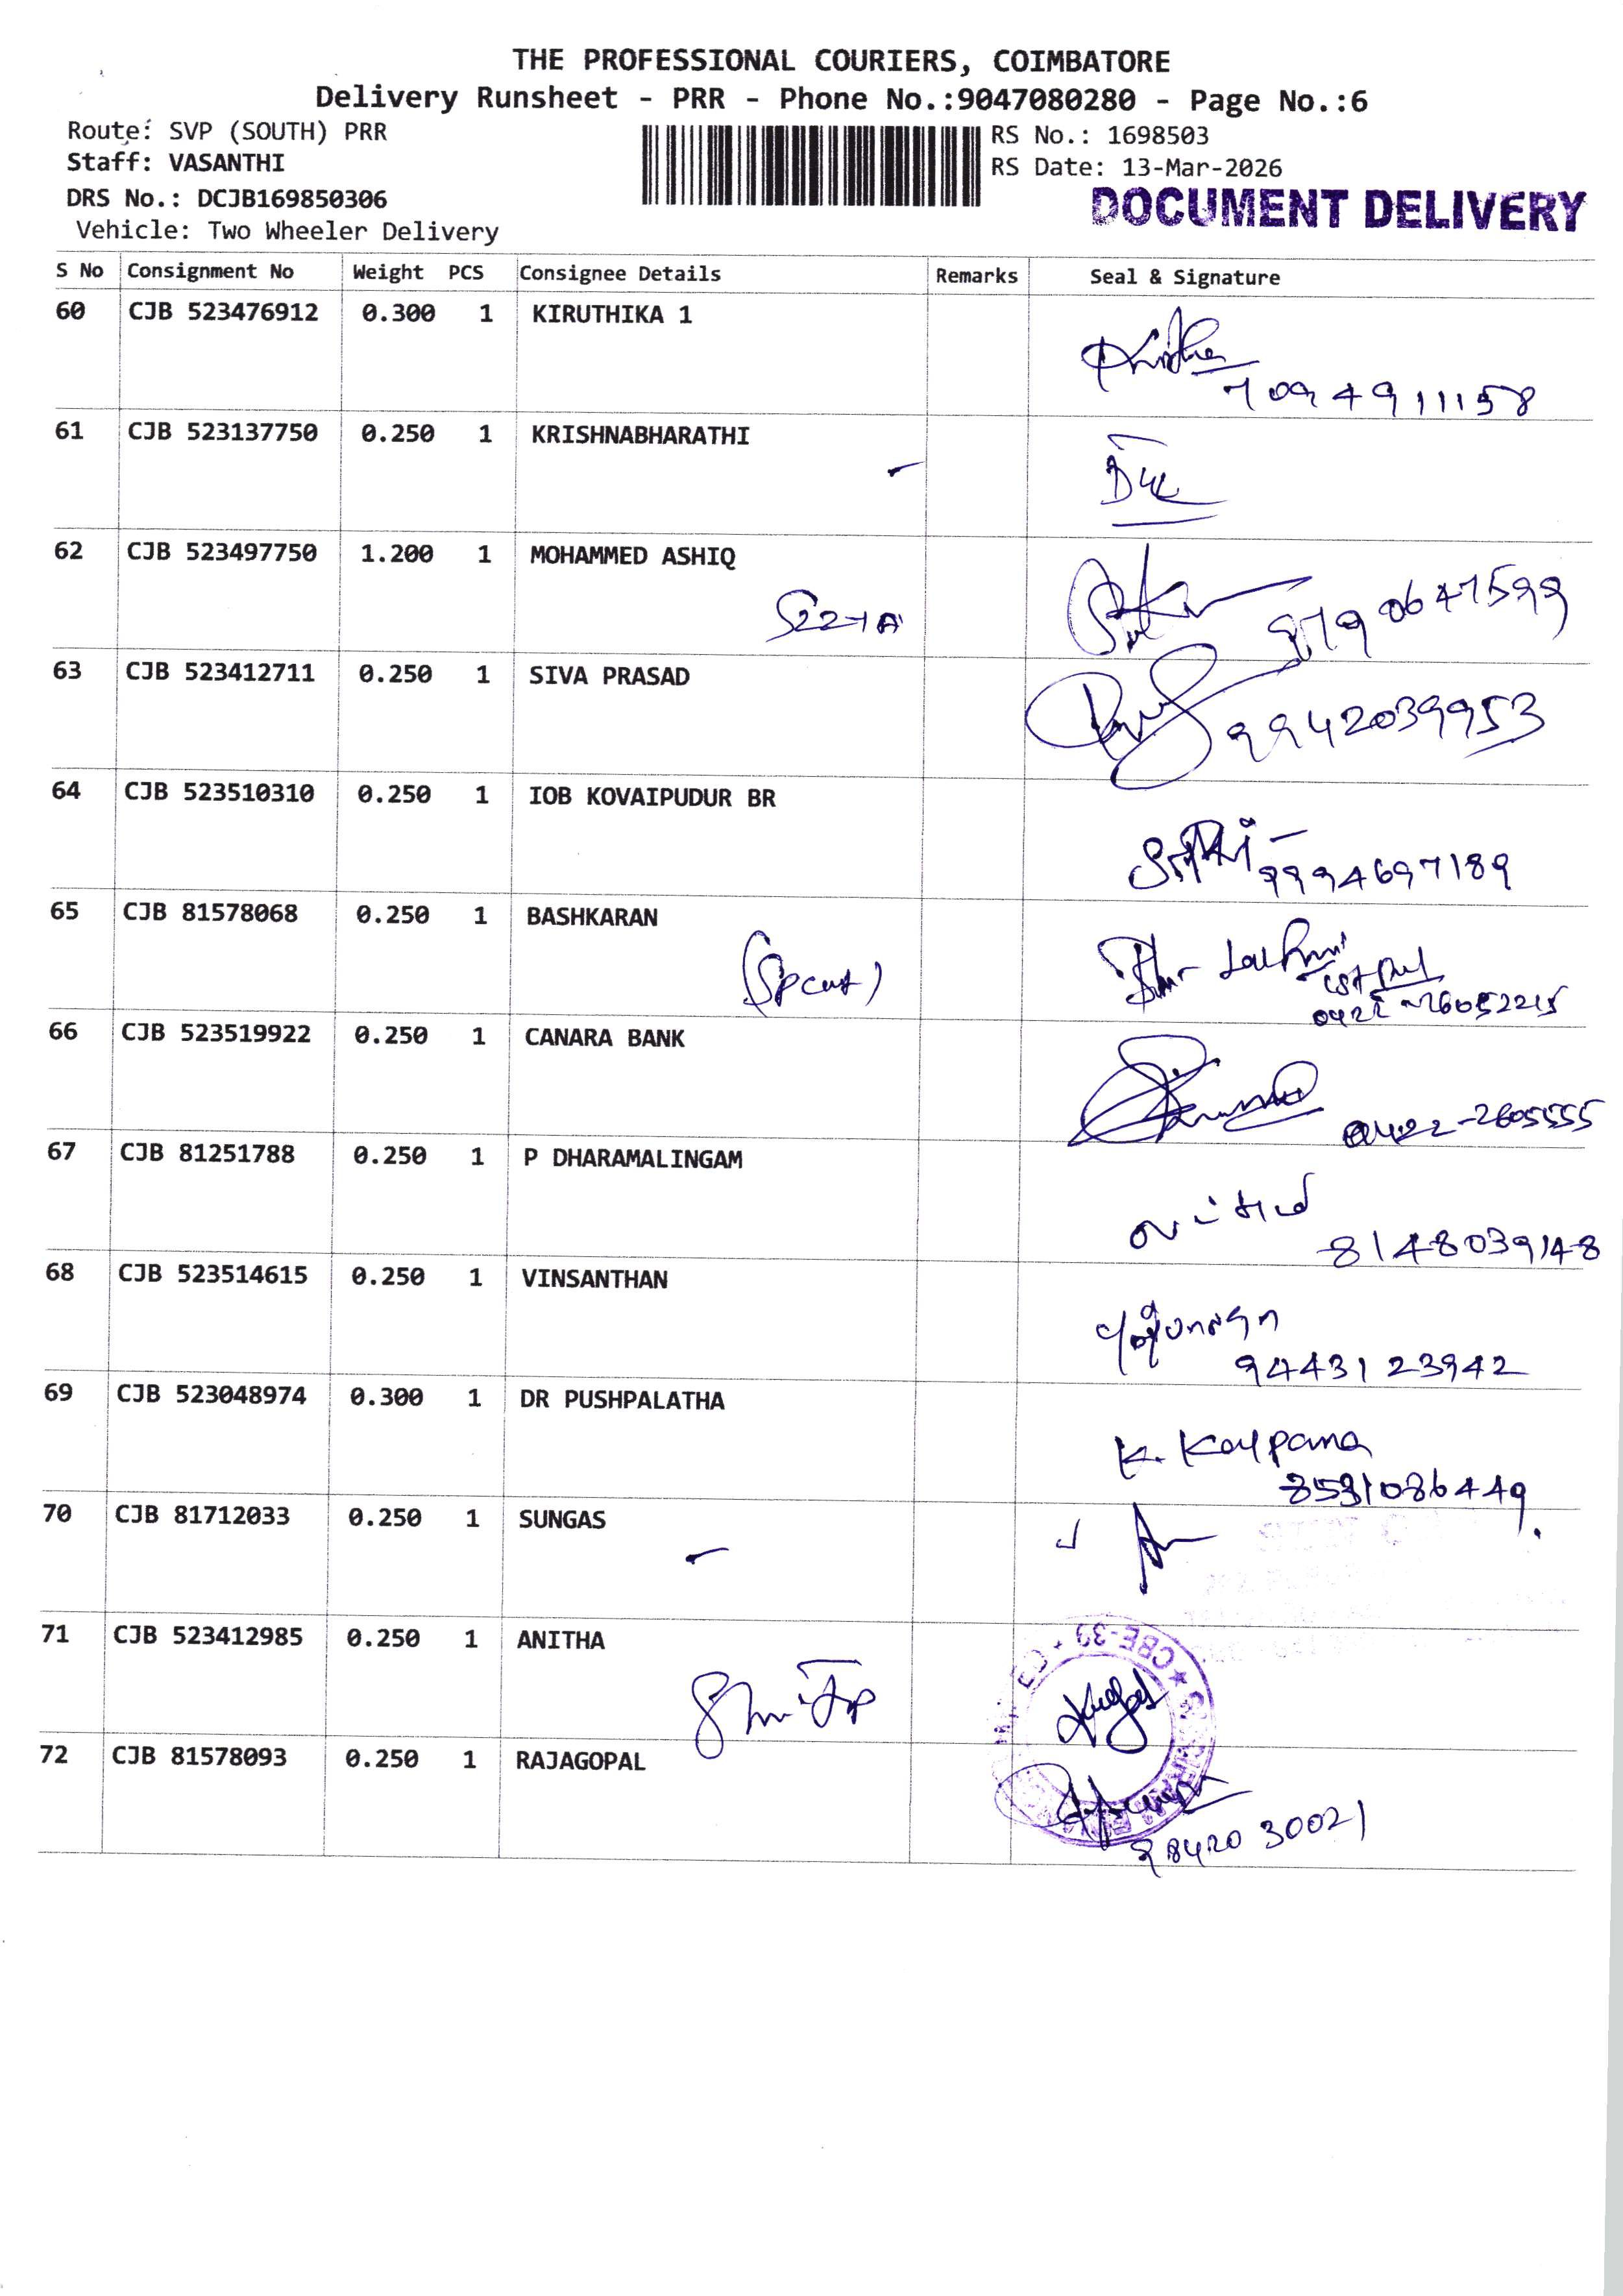 THE PROFESSIONAL COURIERS, COIMBATORE
Delivery Runsheet - PRR - Phone No.:9047080280 - Page No.:6
Route: SVP (SOUTH) PRR
RS No.: 1698503
Staff: VASANTHI
RS Date: 13-Mar-2026
DRS No.: DCJB169850306
DOCUMENT DELIVERY
Vehicle: Two Wheeler Delivery
S No Consignment No Weight PCS Consignee Details Remarks Seal & Signature
60 CJB 523476912 0.300 1 KIRUTHIKA 1
7094911158
61 CJB 523137750 0.250 1 KRISHNABHARATHI
62 CJB 523497750 1.200 1 MOHAMMED ASHIQ
8790647599
63 CJB 523412711 0.250 1 SIVA PRASAD
9942039953
64 CJB 523510310 0.250 1 IOB KOVAIPUDUR BR
9994697189
65 CJB 81578068 0.250 1 BASHKARAN
66 CJB 523519922 0.250 1 CANARA BANK
0422-2605555
67 CJB 81251788 0.250 1 P DHARAMALINGAM
8148039148
68 CJB 523514615 0.250 1 VINSANTHAN
9443123942
69 CJB 523048974 0.300 1 DR PUSHPALATHA
K. Kalpana
8531086449.
70 CJB 81712033 0.250 1 SUNGAS
71 CJB 523412985 0.250 1 ANITHA
CBE-39
72 CJB 81578093 0.250 1 RAJAGOPAL
98420 30021